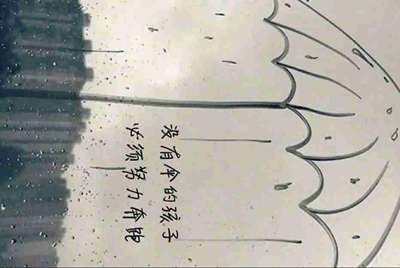 没有伞的孩子
必须努力奔跑